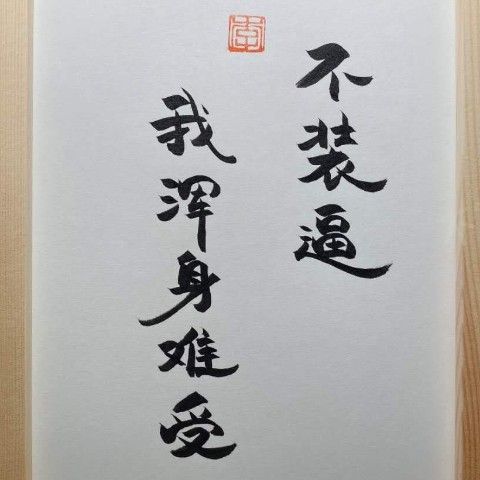 不装逼
我浑身难受